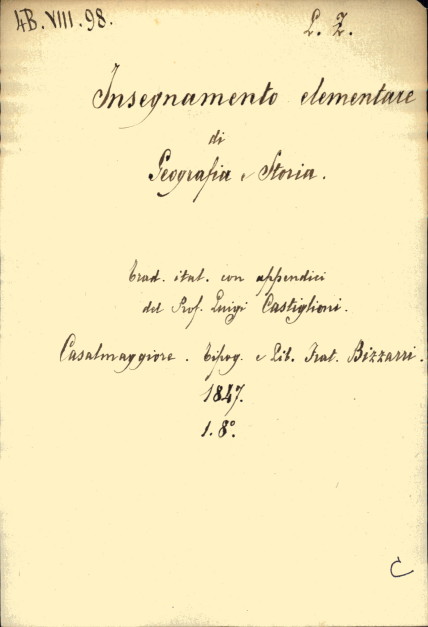 4B.VIII.98.
L. Z.
Insegnamento elementare
di
Geografia e Storia.
Trad. ital. con appendici
del Prof. Luigi Castiglioni.
Casalmaggiore. Tipog. e Lib. Frat. Bizzarri.
1847.
1. 8º.
C